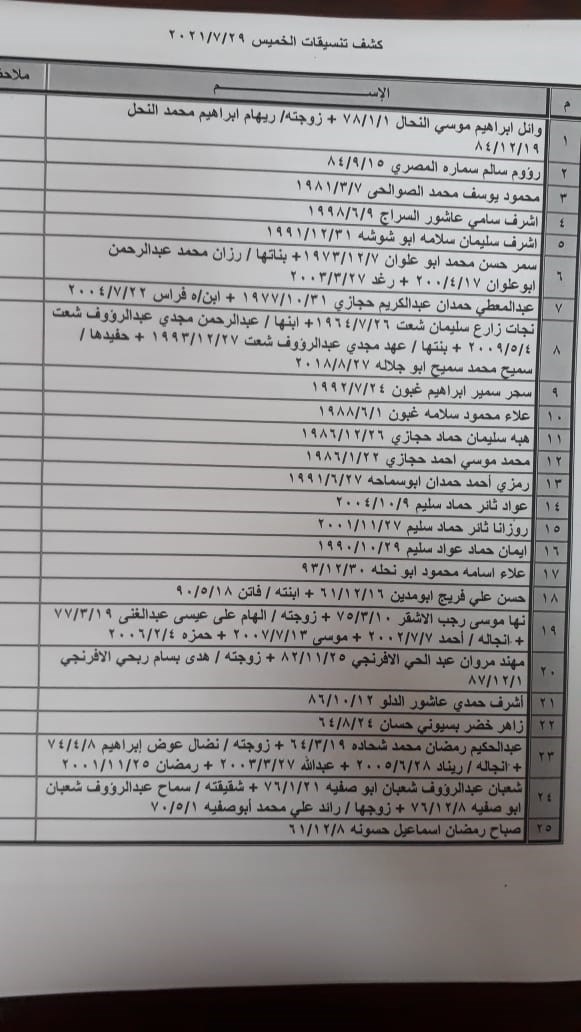 كشف تنسيقات الخميس ٢٠٢١/٧/٢٩
م الإســــم ملاحظ
١ وائل ابراهيم موسي النحال ٧٨/١/١ + زوجته/ ريهام ابراهيم محمد النحل
٨٤/١٢/١٩
٢ رؤوم سالم سماره المصري ٨٤/٩/١٥
٣ محمود يوسف محمد الصوالحي ١٩٨١/٣/٧
٤ اشرف سامي عاشور السراج ١٩٩٨/٦/٩
٥ اشرف سليمان سلامه ابو شوشه ١٩٩١/١٢/٣١
٦ سمر حسن محمد ابو علوان ١٩٧٣/١٢/٧+ بناتها / رزان محمد عبدالرحمن
ابوعلوان ٢٠٠٠/٤/١٧ + رغد ٢٠٠٣/٣/٢٧
٧ عبدالمعطي حمدان عبدالكريم حجازي ١٩٧٧/١٠/٣١ + ابن/ه فراس ٢٠٠٤/٧/٢٢
٨ نجات زارع سليمان شعت ١٩٦٤/٧/٢٦+ ابنها / عبدالرحمن مجدي عبدالرؤوف شعت
٢٠٠٩/٥/٤ + بنتها / عهد مجدي عبدالرؤوف شعت ١٩٩٣/١٢/٢٧ + حفيدها /
سميح محمد سميح ابو جلاله ٢٠١٨/٨/٢٧
٩ سحر سمير ابراهيم غبون ١٩٩٢/٧/٢٤
١٠ علاء محمود سلامه غبون ١٩٨٨/٦/١
١١ هبه سليمان حماد حجازي ١٩٨٦/١٢/٢٦
١٢ محمد موسي احمد حجازي ١٩٨٦/١/٢٢
١٣ رمزي أحمد حمدان ابوسماحه ١٩٩١/٦/٢٧
١٤ عواد ثائر حماد سليم ٢٠٠٤/١٠/٩
١٥ روزانا ثائر حماد سليم ٢٠٠١/١١/٢٧
١٦ ايمان حماد عواد سليم ١٩٩٠/١٠/٢٩
١٧ علاء اسامه محمود ابو نحله ٩٣/١٢/٣٠
١٨ حسن علي فريج ابومدين ٦١/١٢/١٦ + ابنته / فاتن ٩٠/٥/١٨
١٩ نها موسى رجب الاشقر ٧٥/٣/١٠ + زوجته / الهام على عيسى عبدالغنى ٧٧/٣/١٩
+ انجاله / أحمد ٢٠٠٢/٧/٧ + موسى ٢٠٠٧/٧/١٣ + حمزه ٢٠٠٦/٢/٤
٢٠ مهند مروان عبد الحي الافرنجي ٨٢/١١/٢٥ + زوجته / هدى بسام ربحي الافرنجي
٨٧/١٢/١
٢١ أشرف حمدي عاشور الدلو ٨٦/١٠/١٢
٢٢ زاهر خضر بسيوني حسان ٦٤/٨/٢٤
٢٣ عبدالحكيم رمضان محمد شحاده ٦٤/٣/١٩ + زوجته / نضال عوض إبراهيم ٧٤/٤/٨
+ انجاله / ريناد ٢٠٠٥/٦/٢٨ + عبدالله ٢٠٠٣/٣/٢٧ + رمضان ٢٠٠١/١١/٢٥
٢٤ شعبان عبدالرؤوف شعبان ابو صفيه ٧٦/١/٢١ + شقيقته / سماح عبدالرؤوف شعبان
ابو صفيه ٧٦/١٢/٨ + زوجها / رائد علي محمد أبوصفيه ٧٠/٥/١
٢٥ صباح رمضان اسماعيل حسونه ٦١/١٢/٨